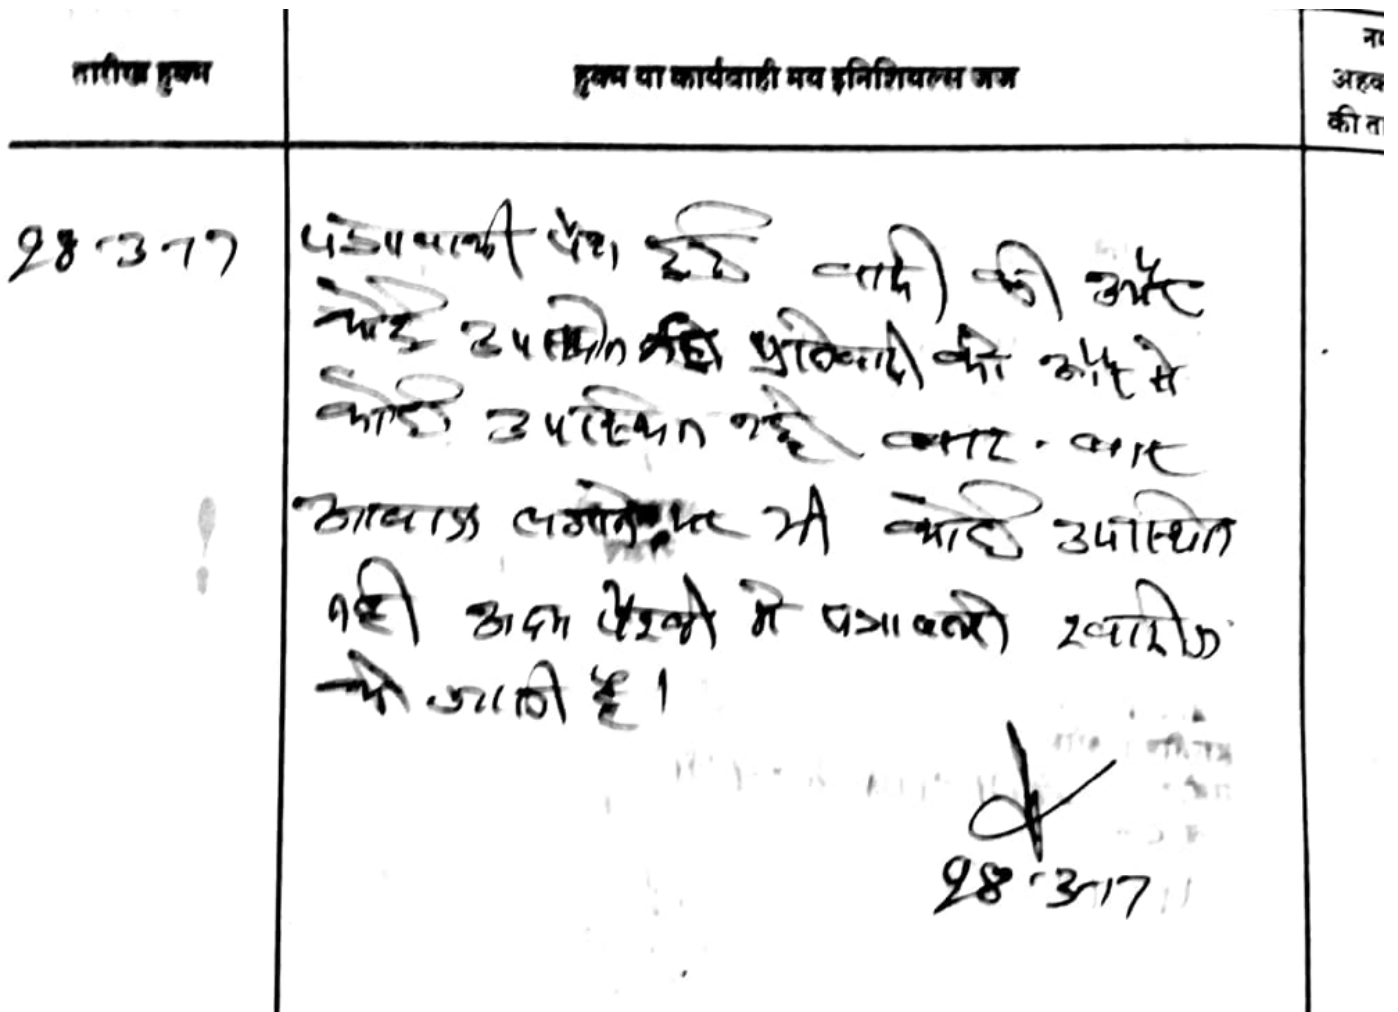 तारीख हुक्म
हुक्म या कार्यवाही मय इनिशियल्स जज
अहक
की ता
28-3-17
पत्रावली पेश हुई वादी की ओर
कोई उपस्थित नही प्रतिवादी की ओर से
कोई उपस्थित नही बार-बार
आवाज लगाने पर भी कोई उपस्थित
नही अदम पैरवी मे पत्रावली खारीज
की जाती है।
28-3-17